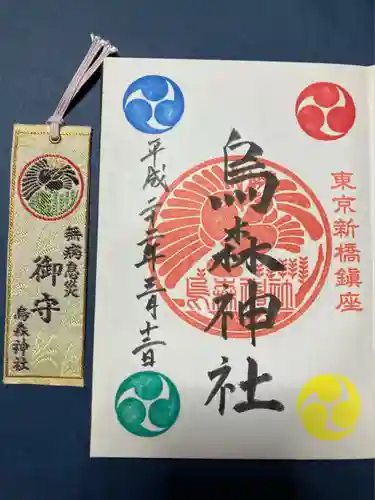 東京新橋鎮座
烏森神社
烏森神社
平成二十二年三月十二日
無病息災
御守
烏森神社